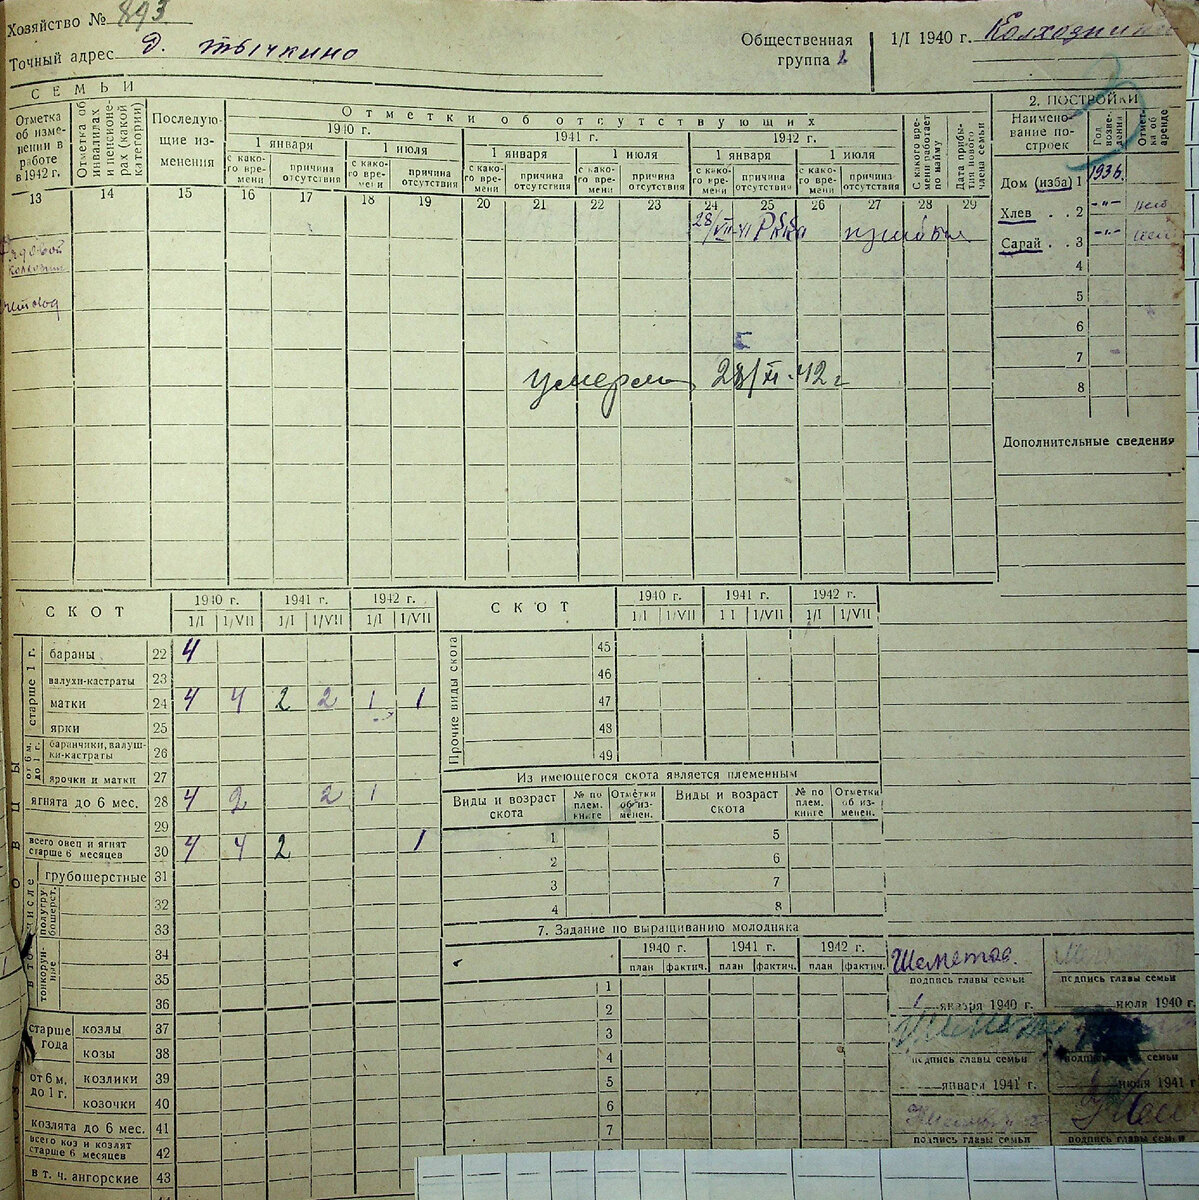 Хозяйство № 893
Точный адрес д. Тычкино
Общественная группа 2
1/I 1940 г. Колхозники
СЕМЬИ
Отметка об изменении в работе в 1942 г.
Отметка об инвалидах и пенсионерах (какой категории)
Последующие изменения
Отметки об отсутствующих
1940 г. 1941 г. 1942 г.
1 января 1 июля 1 января 1 июля 1 января 1 июля
с какого времени причина отсутствия с какого времени причина отсутствия с какого времени причина отсутствия с какого времени причина отсутствия с какого времени причина отсутствия с какого времени причина отсутствия
С какого времени работает по найму
Дата прибытия нового члена семьи
13 14 15 16 17 18 19 20 21 22 23 24 25 26 27 28 29
РККА
рядовой
умерла 28/XI-42 г
2. ПОСТРОЙКИ
Наименование построек
Год возведения
Отметка об аренде
Дом (изба) 1 1936.
Хлев . . 2 -"-
Сарай . . 3 -"-
4
5
6
7
8
Дополнительные сведения
СКОТ 1940 г. 1941 г. 1942 г.
1/I 1/VII 1/I 1/VII 1/I 1/VII
ОВЦЫ
старше 1 г.
бараны 22 4
валухи-кастраты 23
матки 24 4 4 2 2 1 1
ярки 25
от 6 м. до 1 г.
баранчики, валушки-кастраты 26
ярочки и матки 27
ягнята до 6 мес. 28 4 2 2 1
29
всего овец и ягнят старше 6 месяцев 30 4 4 2 1
в том числе
грубошерстные 31
полугрубошерст. 32
33
тонкорунные 34
35
36
старше года
козлы 37
козы 38
от 6 м. до 1 г.
козлики 39
козочки 40
козлята до 6 мес. 41
всего коз и козлят старше 6 месяцев 42
в т. ч. ангорские 43
44
СКОТ 1940 г. 1941 г. 1942 г.
1/I 1/VII 1/I 1/VII 1/I 1/VII
Прочие виды скота
45
46
47
48
49
Из имеющегося скота является племенным
Виды и возраст скота № по плем. книге Отметки об измен. Виды и возраст скота № по плем. книге Отметки об измен.
1 5
2 6
3 7
4 8
7. Задание по выращиванию молодняка
1940 г. 1941 г. 1942 г.
план фактич. план фактич. план фактич.
1
2
3
4
5
6
7
Шеметов.
подпись главы семьи подпись главы семьи
1 января 1940 г. июля 1940 г.
подпись главы семьи подпись главы семьи
января 1941 г. июля 1941 г
подпись главы семьи подпись главы семьи